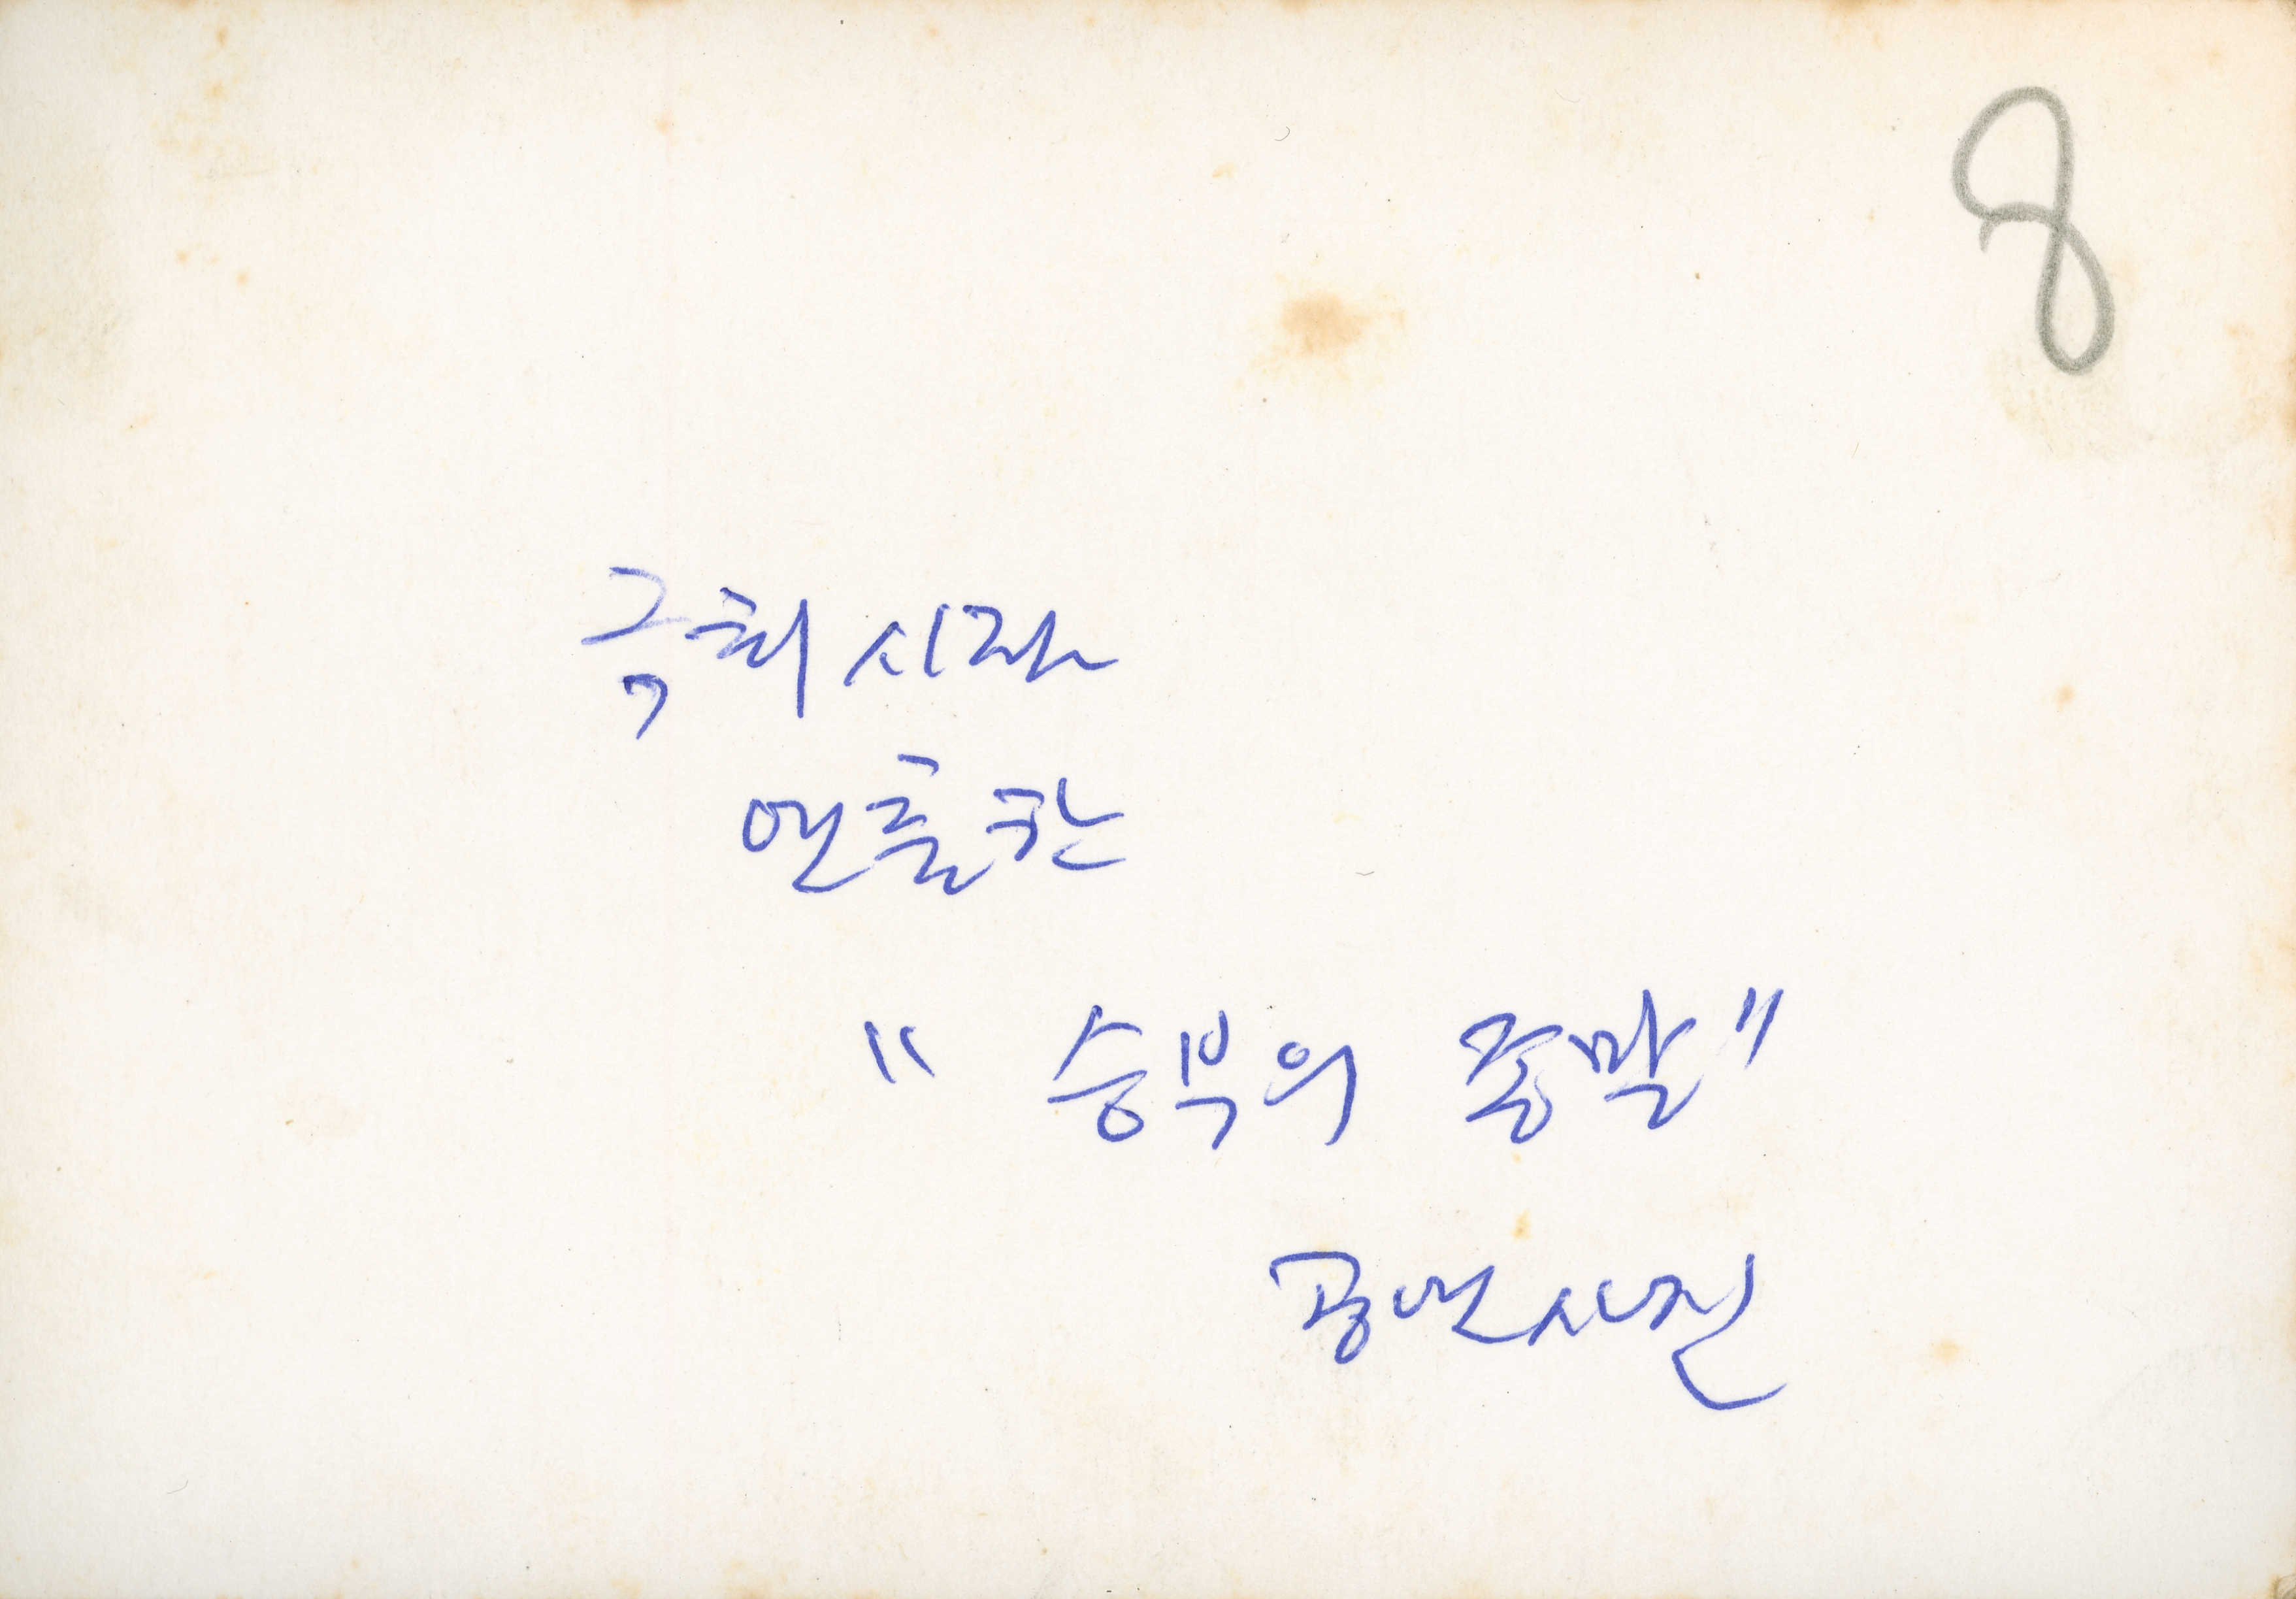 8
극회 시작
연출한
" 승부의 종말"
공연사진